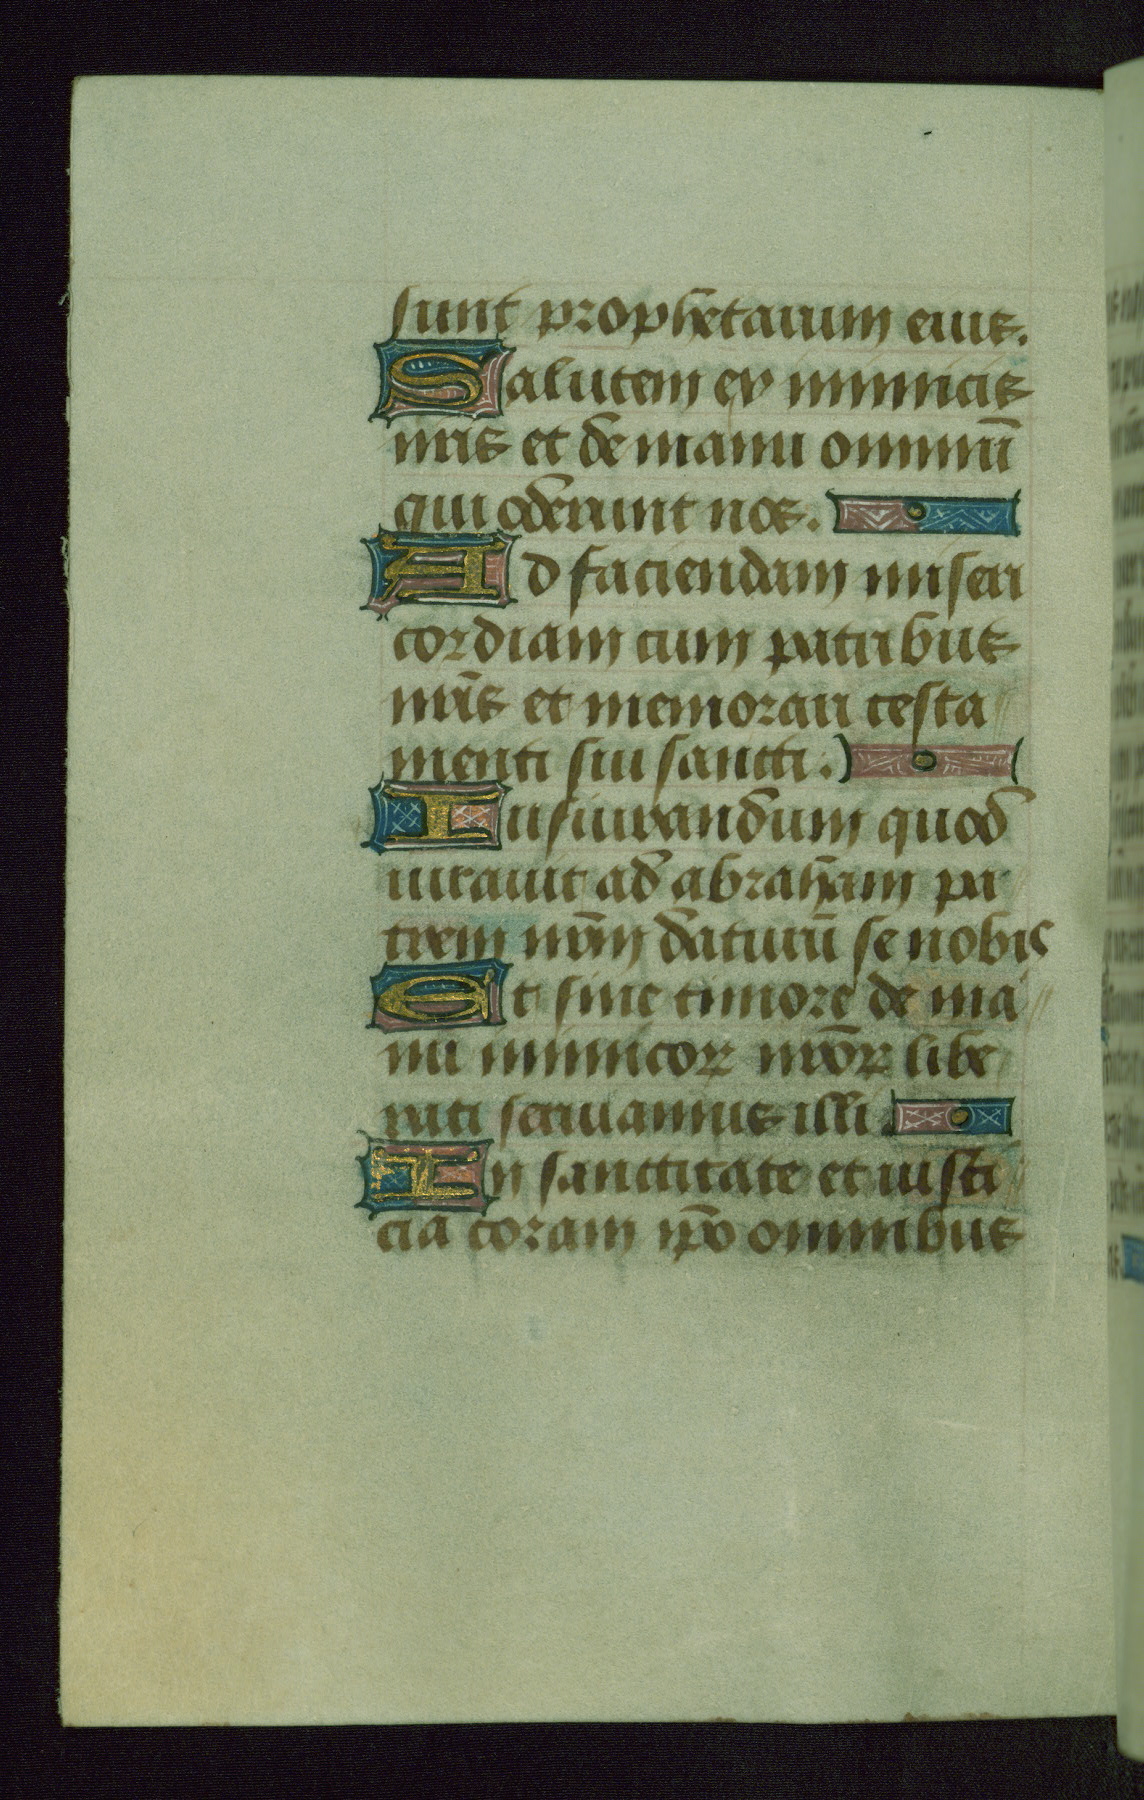 sunt prophetarum eius.
Salutem ex inimicis
nris et de manu omniū
qui oderunt nos.
Ad faciendam miseri
cordiam cum patribus
nrīs et memorari testa
menti sui sancti.
Iusiurandum quod
iurauit ad abraham pa
trem nr̄m daturū se nobis
Et sine timore de ma
nu inimicoꝝ nr̄oꝝ libe
rati seruiamus illi.
In sanctitate et iusti
cia coram ip̄o omnibus